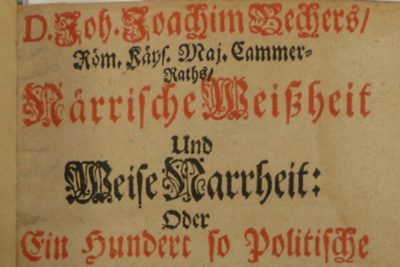 D. Joh. Joachim Bechers/
Röm. Käys. Maj. Cammer-
Raths/
Närrische Weißheit
Und
Weise Narrheit:
Oder
Ein Hundert so Politische